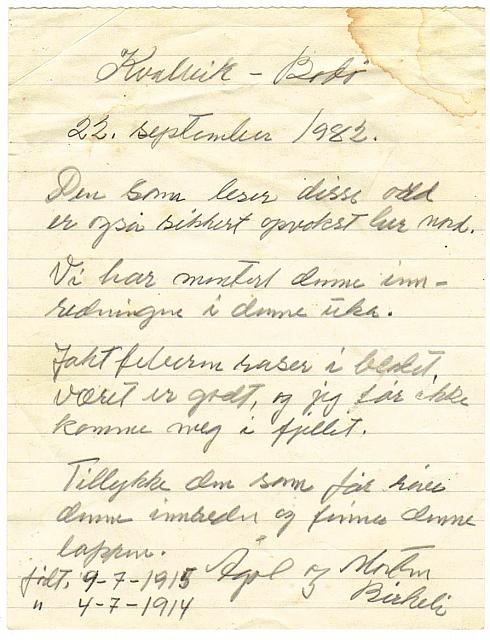 Kvalvik - Bodø
22. september 1982.
Den som leser disse ord
er også sikkert opvokst her nord.
Vi har montert denne inn-
redningne i denne uka.
Jaktfeberen raser i blodet,
været er godt, og jeg får ikke
komme meg i fjellet.
Tillykke den som får rive
denne innreden og finner denne
lappen.
født. 9-7-1915 og Morten
" 4-7-1914 Birkeli